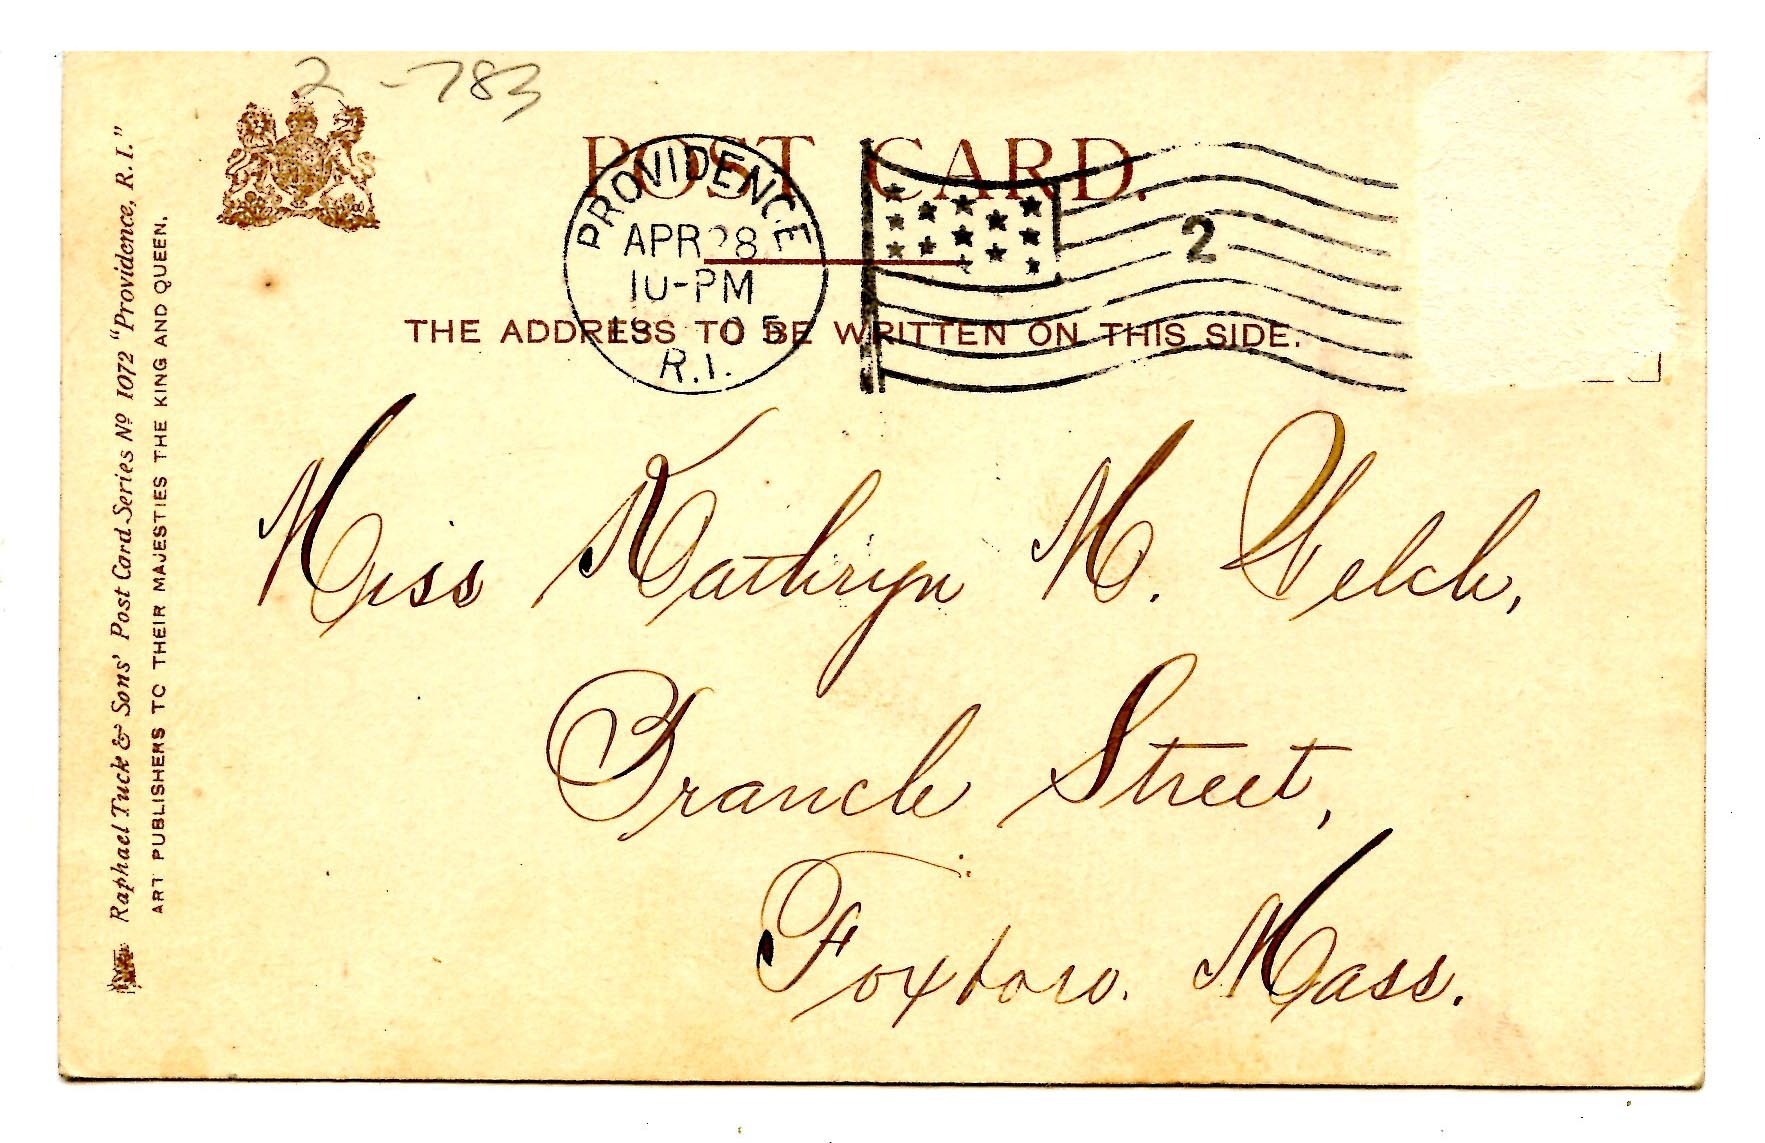 2 - 783
POST CARD.
PROVIDENCE
APR 28
10-PM
1905
R.I.
2
THE ADDRESS TO BE WRITTEN ON THIS SIDE.
Miss Kathryn M. Welch,
Branch Street,
Foxboro. Mass.
Raphael Tuck & Sons' Post Card Series No 1072 "Providence, R.I."
ART PUBLISHERS TO THEIR MAJESTIES THE KING AND QUEEN.